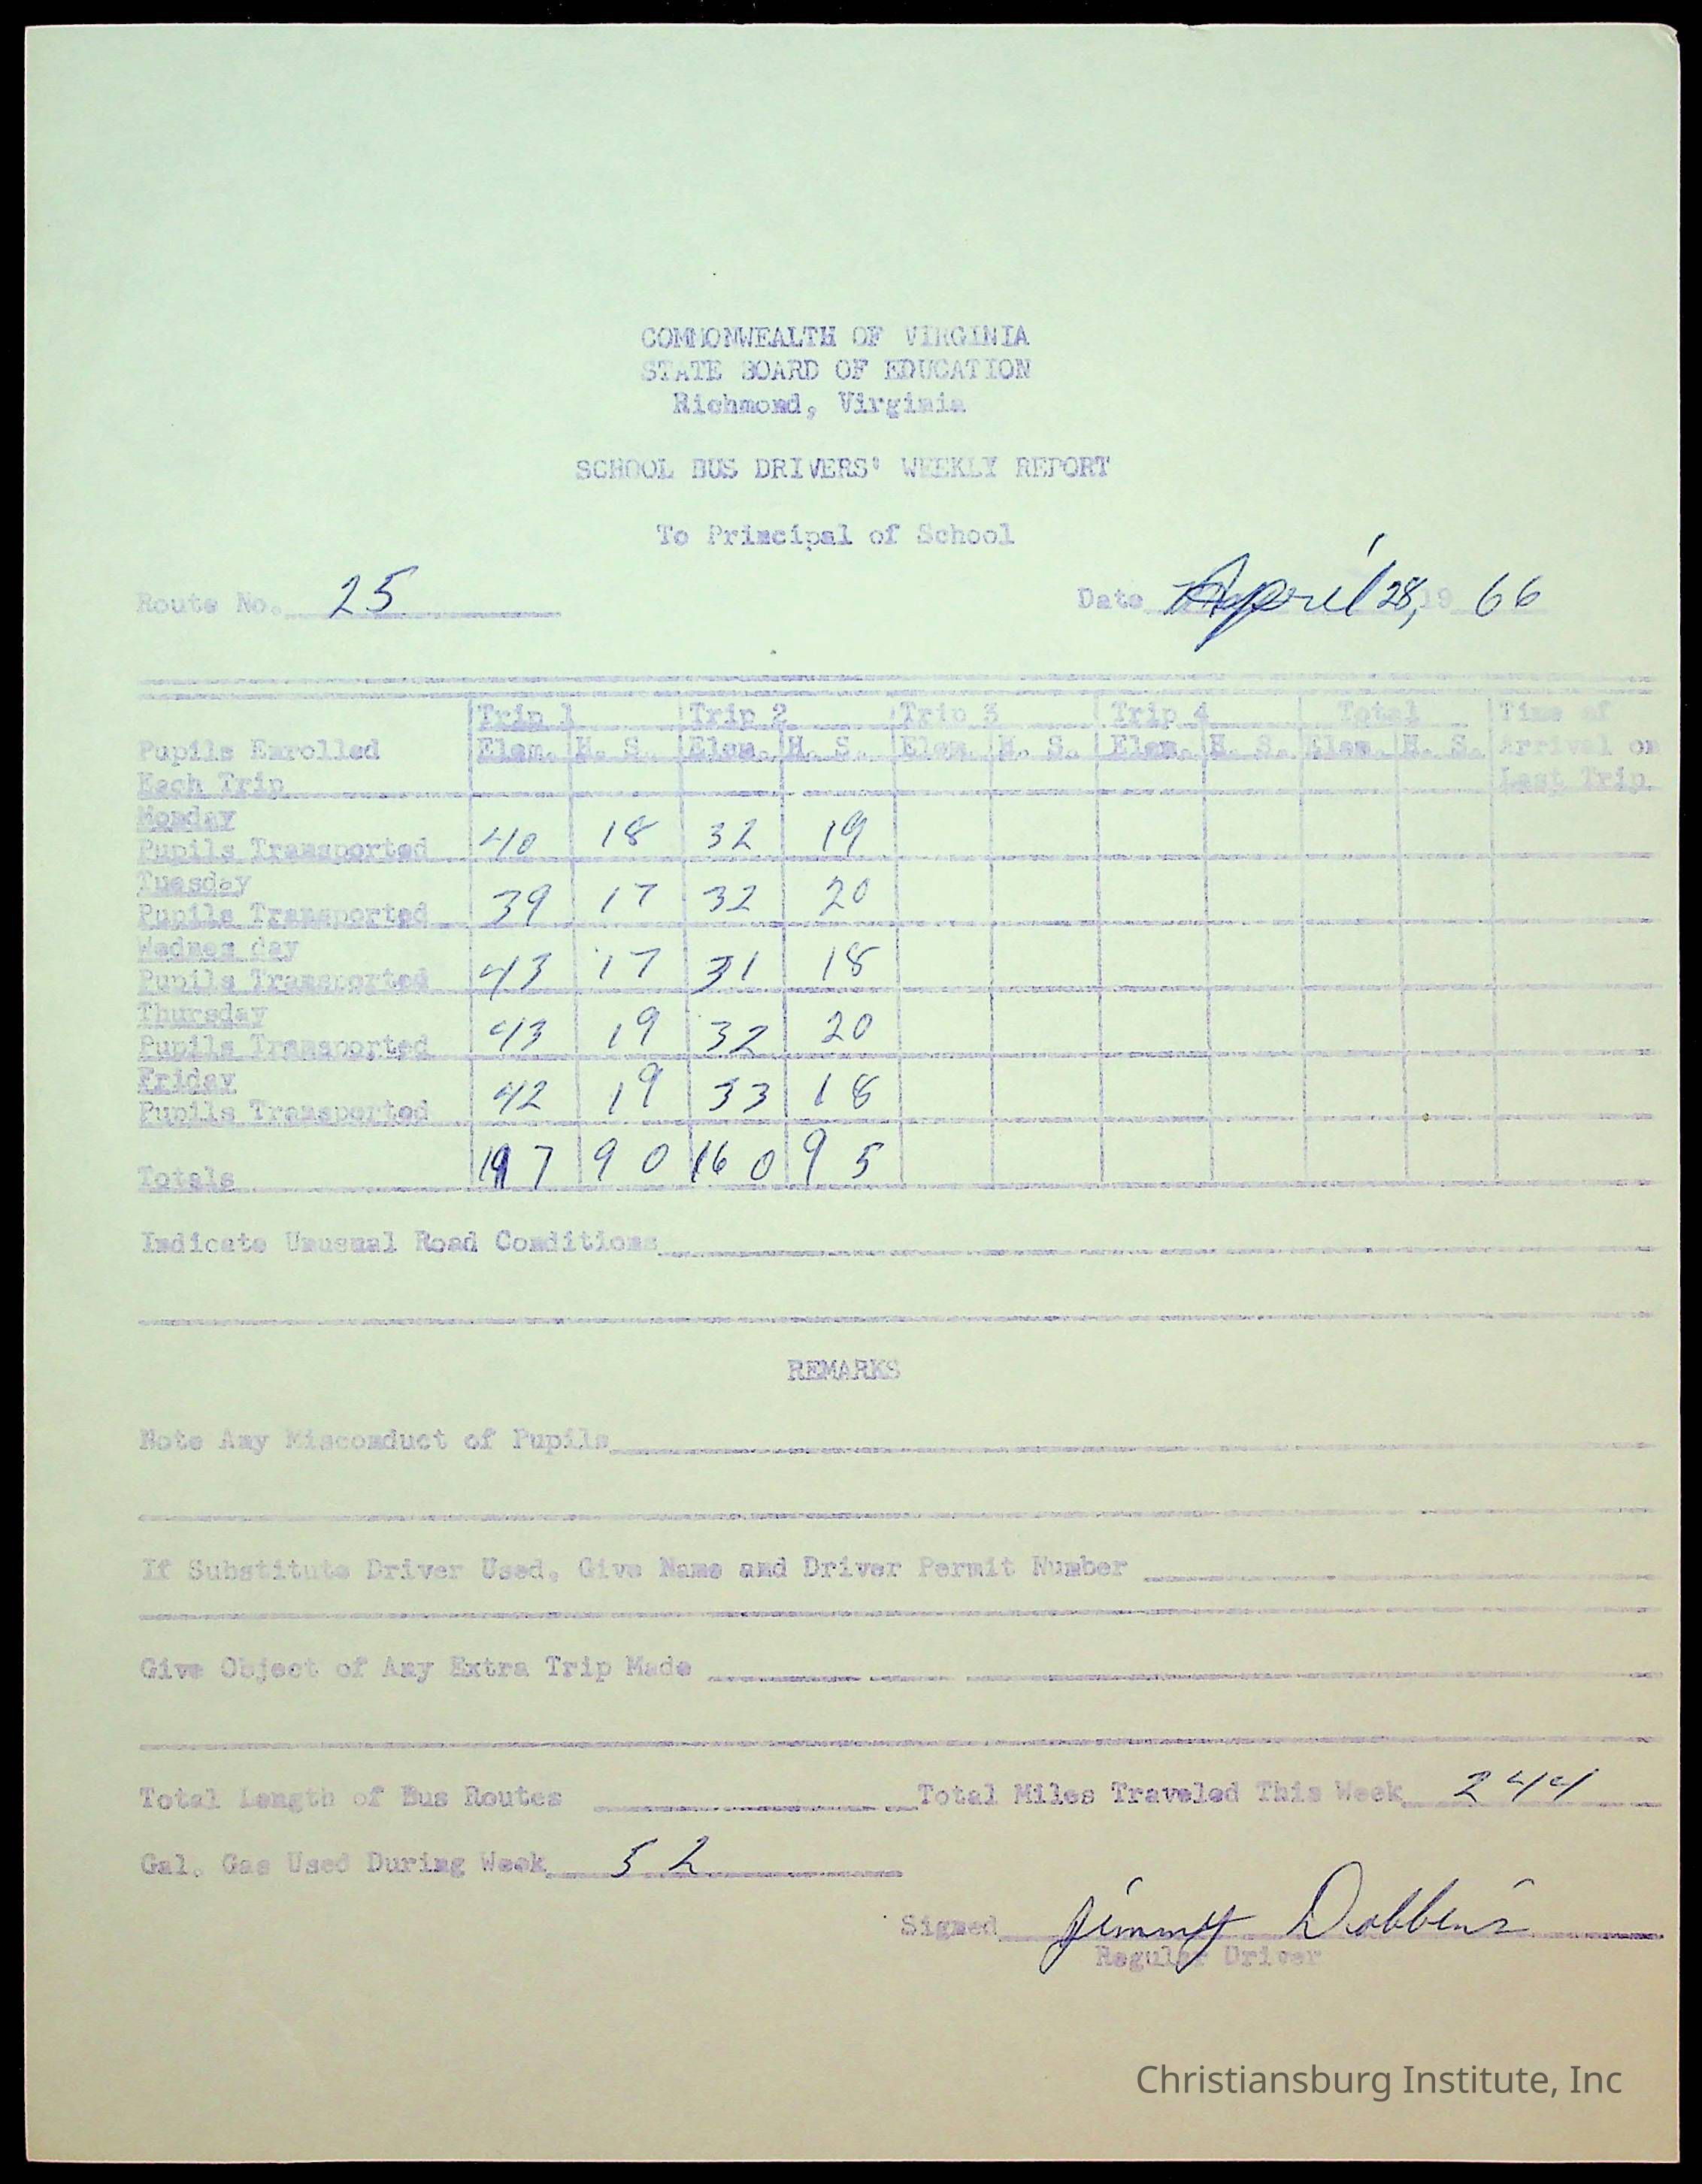 COMMONWEALTH OF VIRGINIA
STATE BOARD OF EDUCATION
Richmond, Virginia
SCHOOL BUS DRIVERS' WEEKLY REPORT
To Principal of School
Route No. 25 Date April 28, 19 66
Trip 1 Trip 2 Trip 3 Trip 4 Total Time of
Pupils Enrolled Elem. H. S. Elem. H. S. Elem. H. S. Elem. H. S. Elem. H. S. Arrival on
Each Trip Last Trip
Monday
Pupils Transported 40 18 32 19
Tuesday
Pupils Transported 39 17 32 20
Wednesday
Pupils Transported 43 17 31 18
Thursday
Pupils Transported 43 19 32 20
Friday
Pupils Transported 42 19 33 18
Totals 197 90 160 95
Indicate Unusual Road Conditions
REMARKS
Note Any Misconduct of Pupils
If Substitute Driver Used, Give Name and Driver Permit Number
Give Object of Any Extra Trip Made
Total Length of Bus Routes Total Miles Traveled This Week 244
Gal. Gas Used During Week 52
Signed Jimmy Dobbins
Regular Driver
Christiansburg Institute, Inc